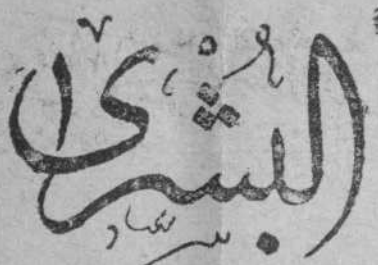 البشرى